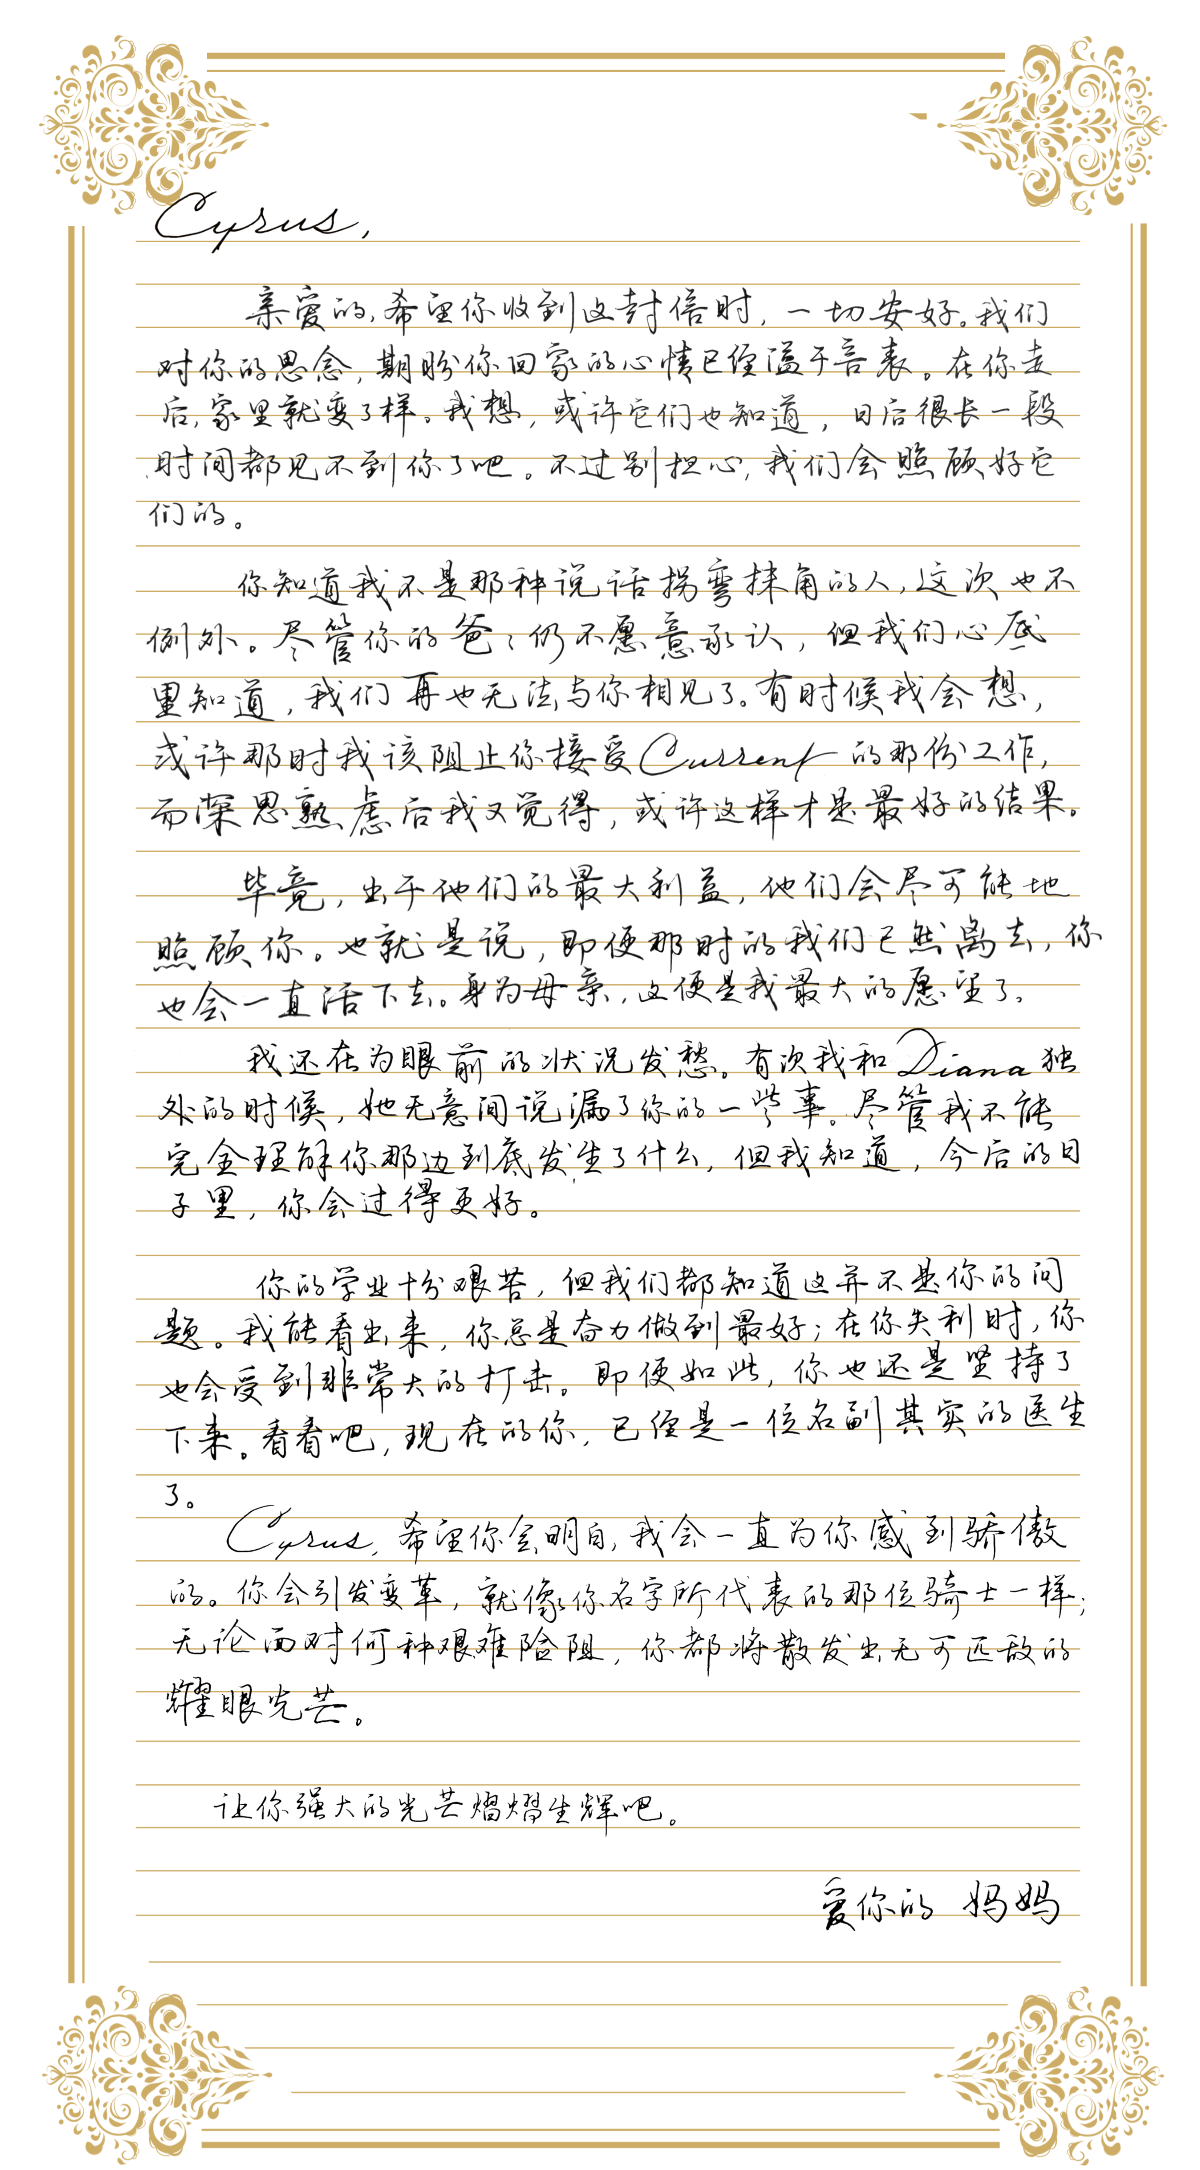 Cyrus,
亲爱的,希望你收到这封信时,一切安好。我们
对你的思念,期盼你回家的心情已经溢于言表。在你走
后,家里就变了样。我想,或许它们也知道,日后很长一段
时间都见不到你了吧。不过别担心,我们会照顾好它
们的。
你知道我不是那种说话拐弯抹角的人,这次也不
例外。尽管你的爸爸仍不愿意承认,但我们心底
里知道,我们再也无法与你相见了。有时候我会想,
或许那时我该阻止你接受Current的那份工作,
而深思熟虑后我又觉得,或许这样才是最好的结果。
毕竟,出于他们的最大利益,他们会尽可能地
照顾你。也就是说,即便那时的我们已然离去,你
也会一直活下去。身为母亲,这便是我最大的愿望了。
我还在为眼前的状况发愁。有次我和Diana独
处的时候,她无意间说漏了你的一些事。尽管我不能
完全理解你那边到底发生了什么,但我知道,今后的日
子里,你会过得更好。
你的学业十分艰苦,但我们都知道这并不是你的问
题。我能看出来,你总是奋力做到最好;在你失利时,你
也会受到非常大的打击。即便如此,你也还是坚持了
下来。看看吧,现在的你,已经是一位名副其实的医生
了。
Cyrus,希望你会明白,我会一直为你感到骄傲
的。你会引发变革,就像你名字所代表的那位骑士一样;
无论面对何种艰难险阻,你都将散发出无可匹敌的
耀眼光芒。
让你强大的光芒熠熠生辉吧。
爱你的 妈妈